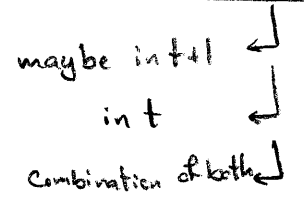 maybe in t+1
in t
Combination of both